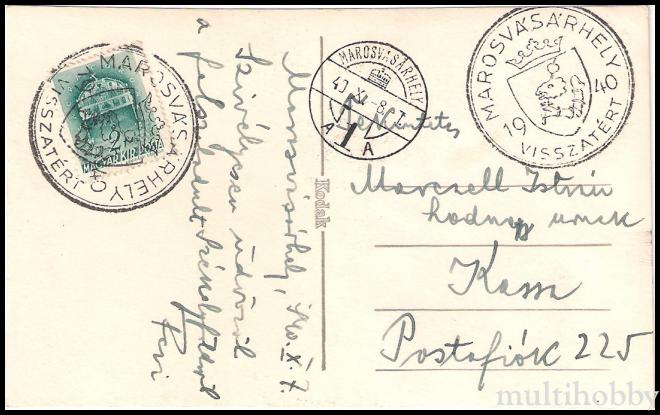 MAROSVÁSÁRHELY
VISSZATÉRT
MAGYAR KIR. POSTA
Marosvásárhely, 940. X. 7.
Szívélyesen üdvözöl
a felszabadult Székelyföldről
Feri
Kodak
MAROSVÁSÁRHELY
40 X -8
A 1 A
MAROSVÁSÁRHELY
1940
VISSZATÉRT
Tekintetes
István
hadnagy urnak
Kassa
Postafiók 225
multihobby